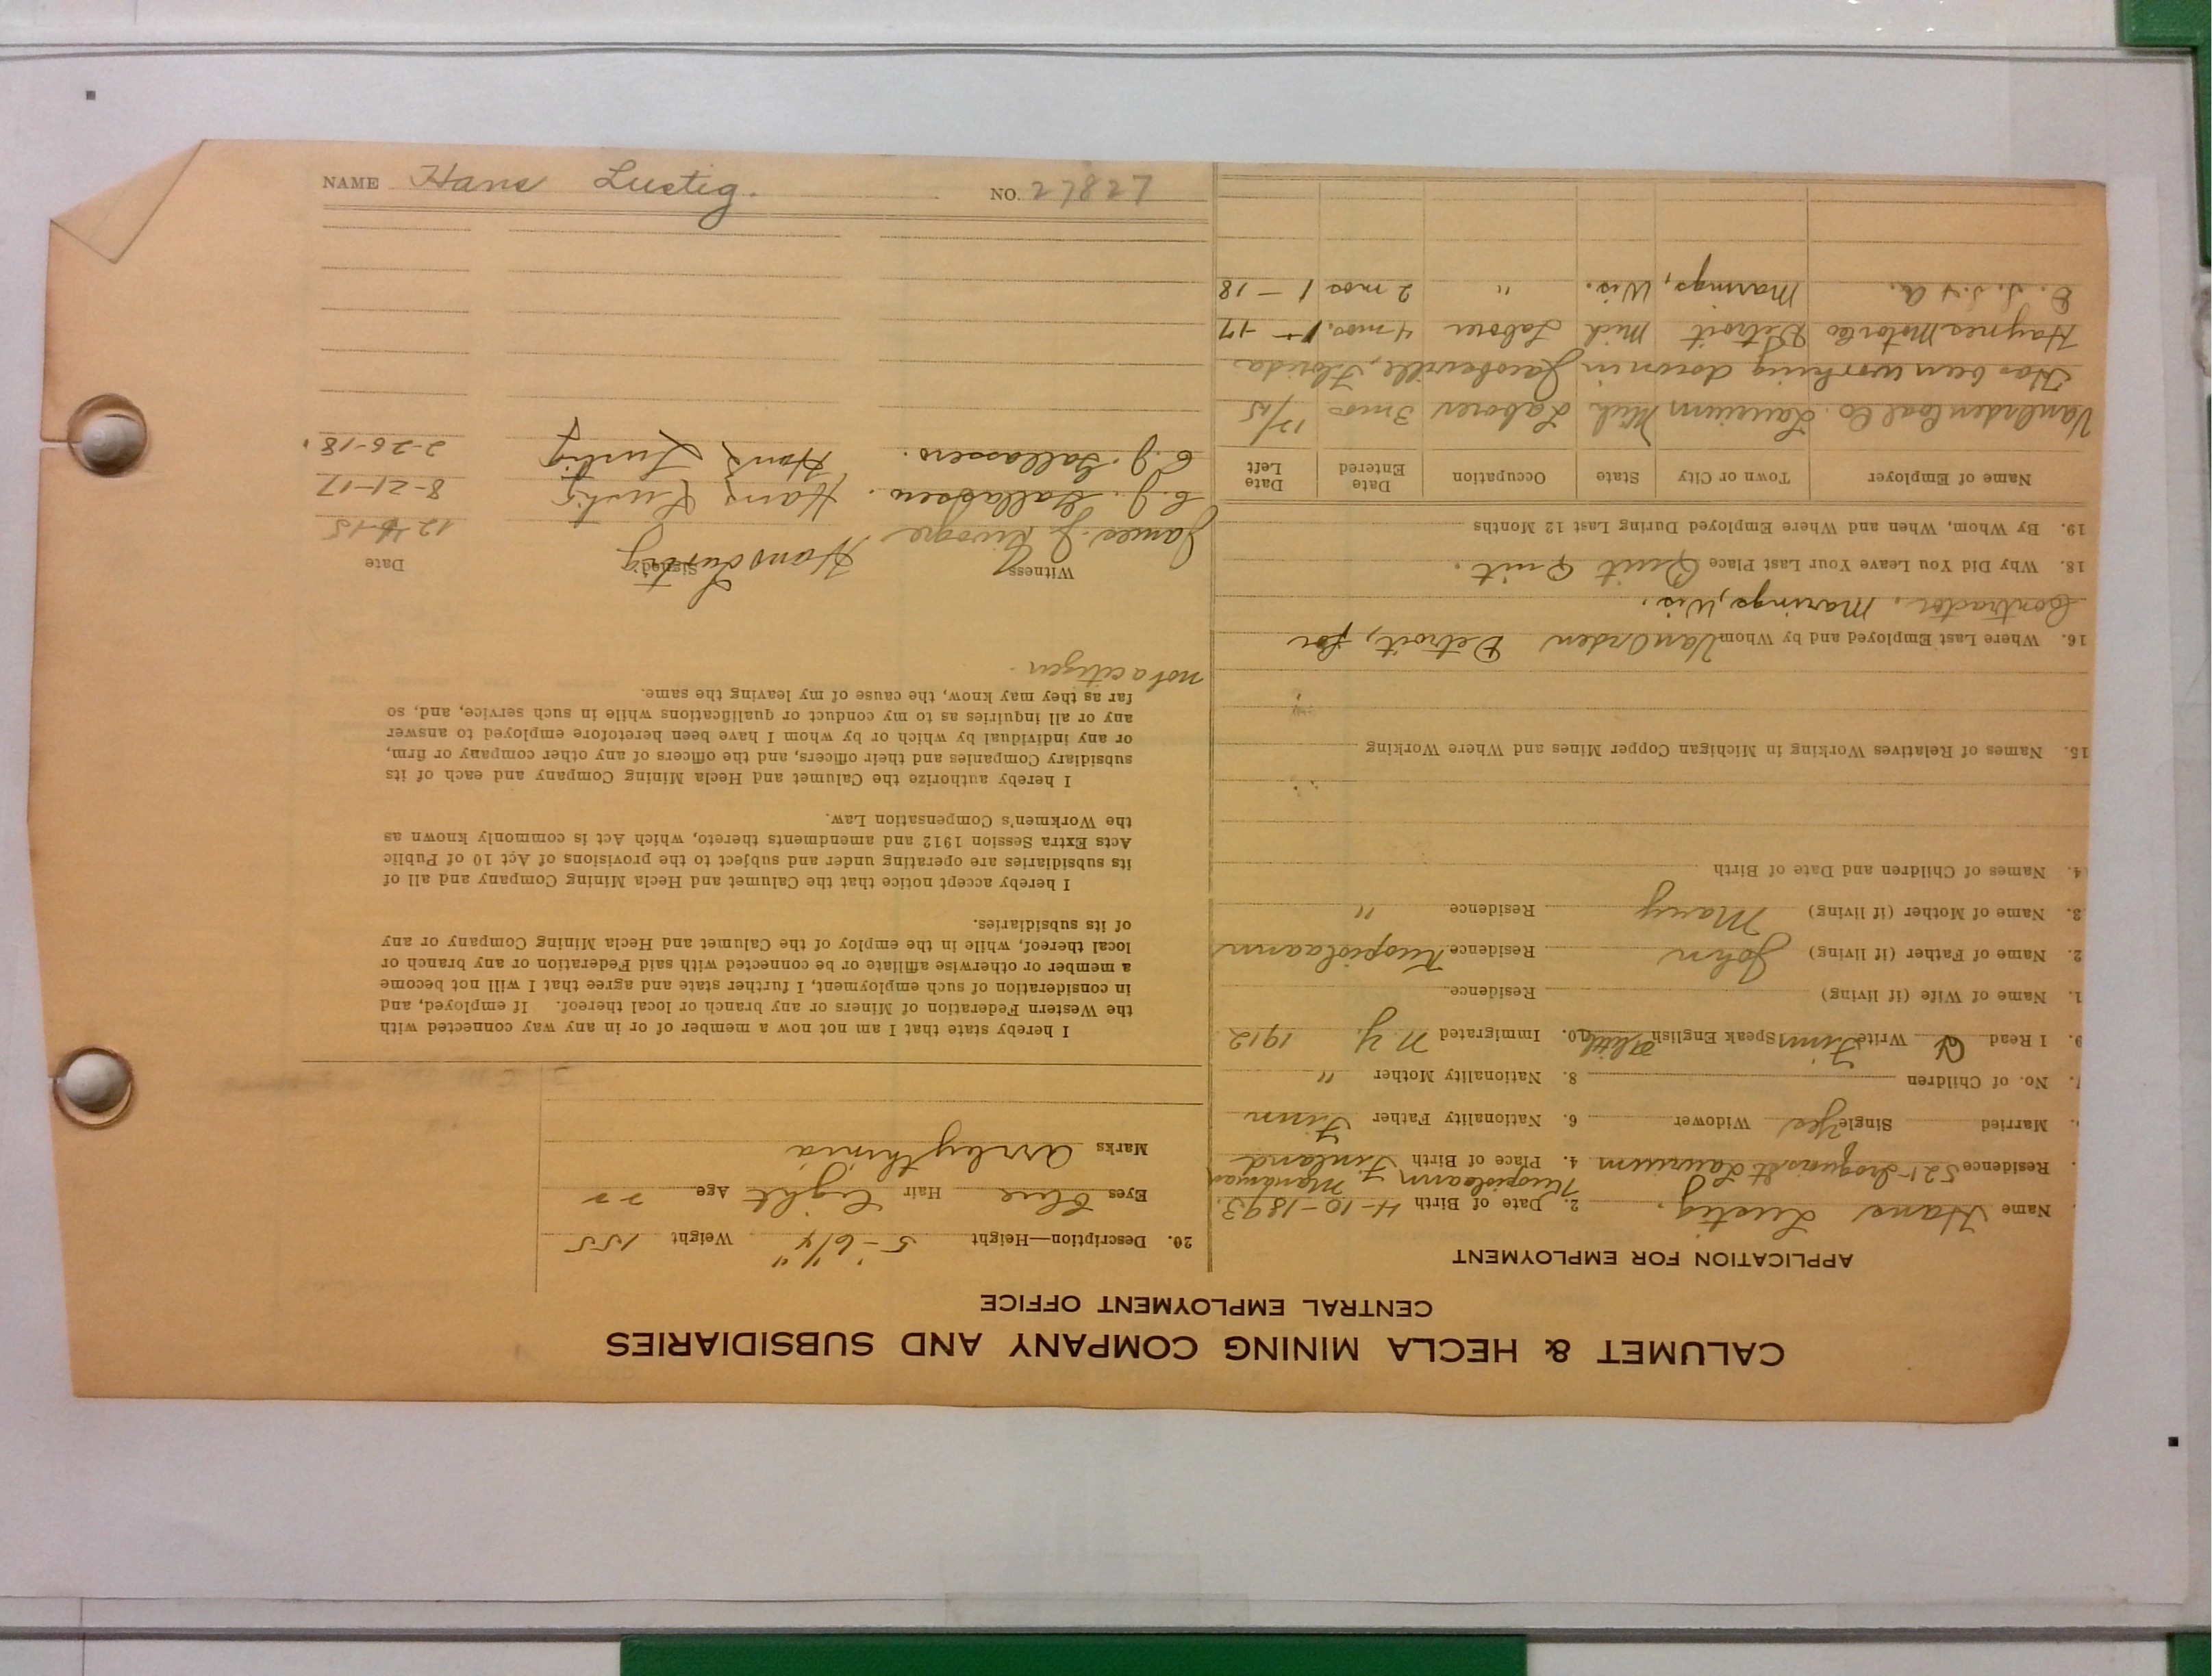 CALUMET & HECLA MINING COMPANY AND SUBSIDIARIES
CENTRAL EMPLOYMENT OFFICE
APPLICATION FOR EMPLOYMENT
Name Hans Lustig. 2. Date of Birth 4-10-1893.
Residence 521 Iroquois St Laurium 4. Place of Birth Finland
Married Single Yes Widower 6. Nationality Father Finn
7. No. of Children 8. Nationality Mother "
9. I Read Write Finn Speak English 10. Immigrated N.Y. 1912
1. Name of Wife (if living) Residence
2. Name of Father (if living) John Residence Kuopiolaani
3. Name of Mother (if living) Mary Residence "
4. Names of Children and Date of Birth
15. Names of Relatives Working in Michigan Copper Mines and Where Working
16. Where Last Employed and by Whom Van Orden Detroit, for
Contractor. Wis.
18. Why Did You Leave Your Last Place Quit Quit.
19. By Whom, When and Where Employed During Last 12 Months
Name of Employer Town or City State Occupation Date Entered Date Left
VanOrden Coal Co. Laurium Mich Laborer 3 mos 12/15
Has been working down in Jacksonville, Florida
Haynes Motor Co Detroit Mich Laborer 4 mos. -17
Wis. " 2 mos 1-18
20. Description—Height 5-6 1/4" Weight 155
Eyes blue Hair light Age 22
Marks
I hereby state that I am not now a member of or in any way connected with
the Western Federation of Miners or any branch or local thereof. If employed, and
in consideration of such employment, I further state and agree that I will not become
a member or otherwise affiliate or be connected with said Federation or any branch or
local thereof, while in the employ of the Calumet and Hecla Mining Company or any
of its subsidiaries.
I hereby accept notice that the Calumet and Hecla Mining Company and all of
its subsidiaries are operating under and subject to the provisions of Act 10 of Public
Acts Extra Session 1912 and amendments thereto, which Act is commonly known as
the Workmen's Compensation Law.
I hereby authorize the Calumet and Hecla Mining Company and each of its
subsidiary Companies and their officers, and the officers of any other company or firm,
or any individual by which or by whom I have been heretofore employed to answer
any or all inquiries as to my conduct or qualifications while in such service, and, so
far as they may know, the cause of my leaving the same.
not a citizen.
Witness Signed Date
James J. Hans Lustig 12 15
C.J. Gallassero. Hans Lustig 8-21-17
C.J. Gallassero. Hans Lustig 2-26-18.
NAME Hans Lustig. NO. 27827